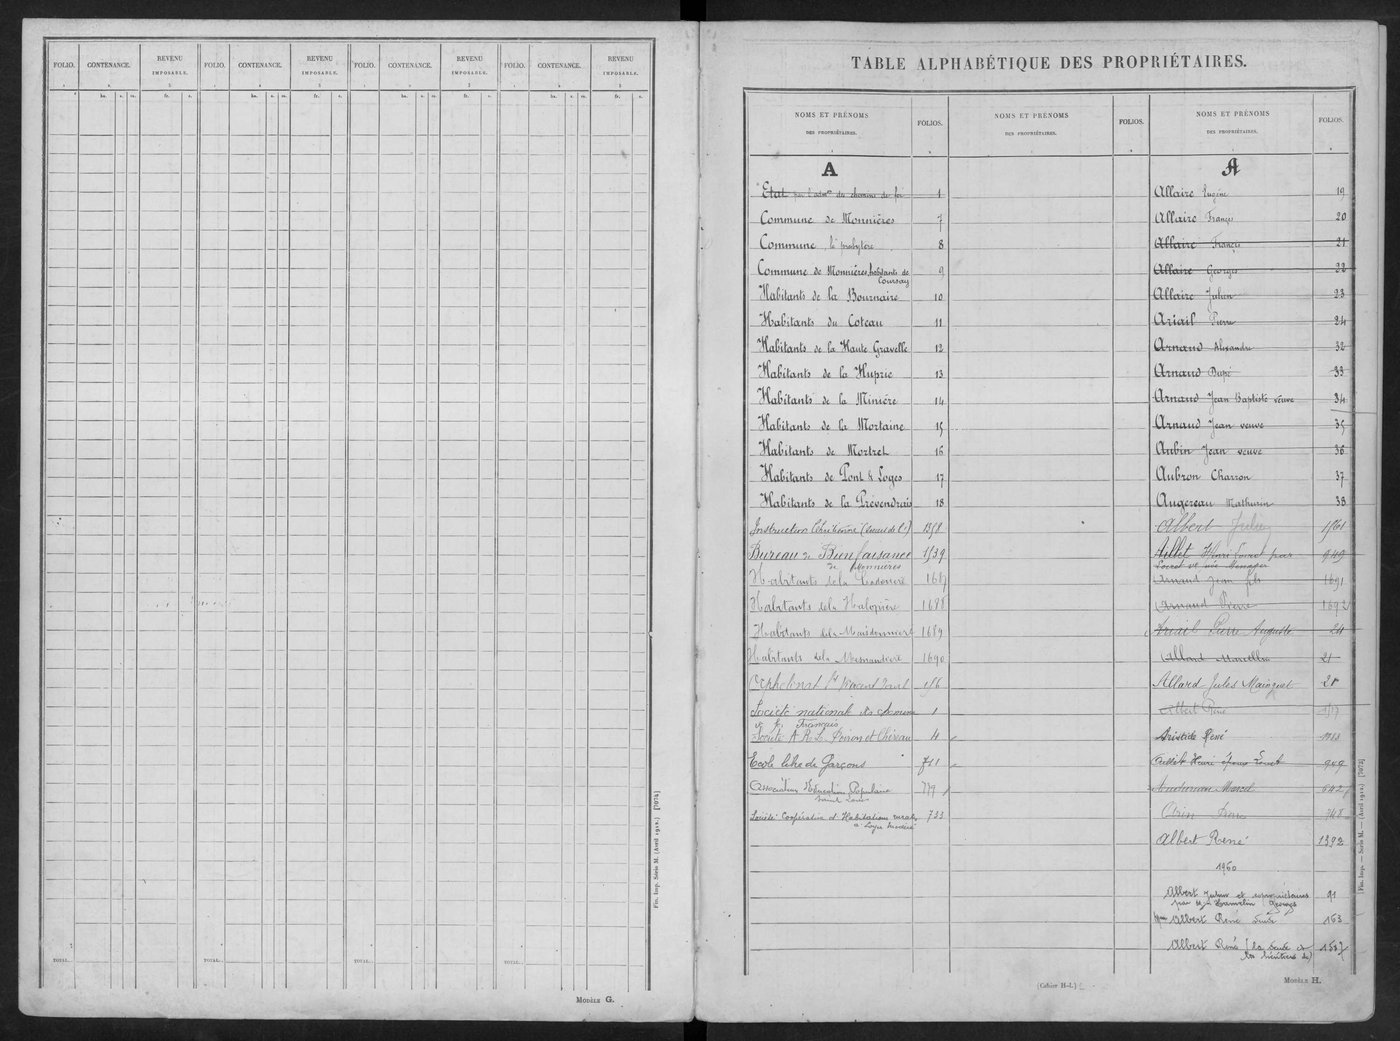 FOLIO. CONTENANCE. REVENU IMPOSABLE. FOLIO. CONTENANCE. REVENU IMPOSABLE. FOLIO. CONTENANCE. REVENU IMPOSABLE. FOLIO. CONTENANCE. REVENU IMPOSABLE.
1 2 3 1 2 3 1 2 3 1 2 3
ha. a. ca. fr. c. ha. a. ca. fr. c. ha. a. ca. fr. c. ha. a. ca. fr. c.
TOTAL. TOTAL. TOTAL. TOTAL.
Fin. Imp. Série M. (Avril 1912.) [7074]
MODÈLE G.
TABLE ALPHABÉTIQUE DES PROPRIÉTAIRES.
NOMS ET PRÉNOMS DES PROPRIÉTAIRES. FOLIOS. NOMS ET PRÉNOMS DES PROPRIÉTAIRES. FOLIOS. NOMS ET PRÉNOMS DES PROPRIÉTAIRES. FOLIOS.
A
Etat par l'admon des chemins de fer 1
Commune de Monnières 7
Commune, le presbytère 8
Commune de Monnières, habitants de Coursay 9
Habitants de la Bournaire 10
Habitants du Coteau 11
Habitants de la Haute Gravelle 12
Habitants de la Huprie 13
Habitants de la Minière 14
Habitants de la Mortaine 15
Habitants de Mortret 16
Habitants de Pont & Loges 17
Habitants de la Prévendrais 18
Instruction Chrétienne 1398
Bureau de Bienfaisance de Monnières 1539
Habitants de la 1687
Habitants de la Halopière 1688
Habitants de la Maisdonnière 1689
Habitants de la 1690
Orphelinat St Vincent Paul
Société nationale des chemins de f. Français 1
Société A R L Poiron et Chéreau 4
Ecole libre de Garçons 711
Association Education Populaire Saint Louis 779
Société Coopération et Habitations rurales à Loyer modéré 733
A
Allaire Eugène 19
Allaire François 20
Allaire François 21
Allaire Georges 22
Allaire Julien 23
Ariail Pierre 24
Arnaud Alexandre 32
Arnaud Dupé 33
Arnaud Jean Baptiste veuve 34
Arnaud Jean veuve 35
Aubin Jean veuve 36
Aubron Charron 37
Augereau Mathurin 38
Albert Jules 1561
Aillet Henri 949
Arnaud Jean fils 1691
Arnaud Pierre 1692
Ariail Pierre Auguste 24
Allard Marcellin 21
Allard Jules Mainguet 21
Albert René
Aristide René
Henri époux 949
Marcel 642
748
Albert René 1392
1960
Albert Julien et copropriétaires par Mr Hamelin Georges 91
Mme Albert René 163
Albert René (la veuve et les héritiers de)
(Cahier H-I.)
MODÈLE H.
Fin. Imp. — Série M. — (Avril 1912.) [7075]